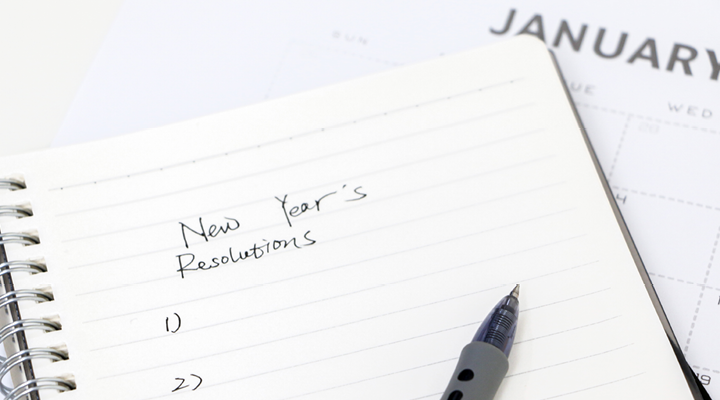 JANUARY
SUN
TUE
WED
New Year's
Resolutions
1)
2)